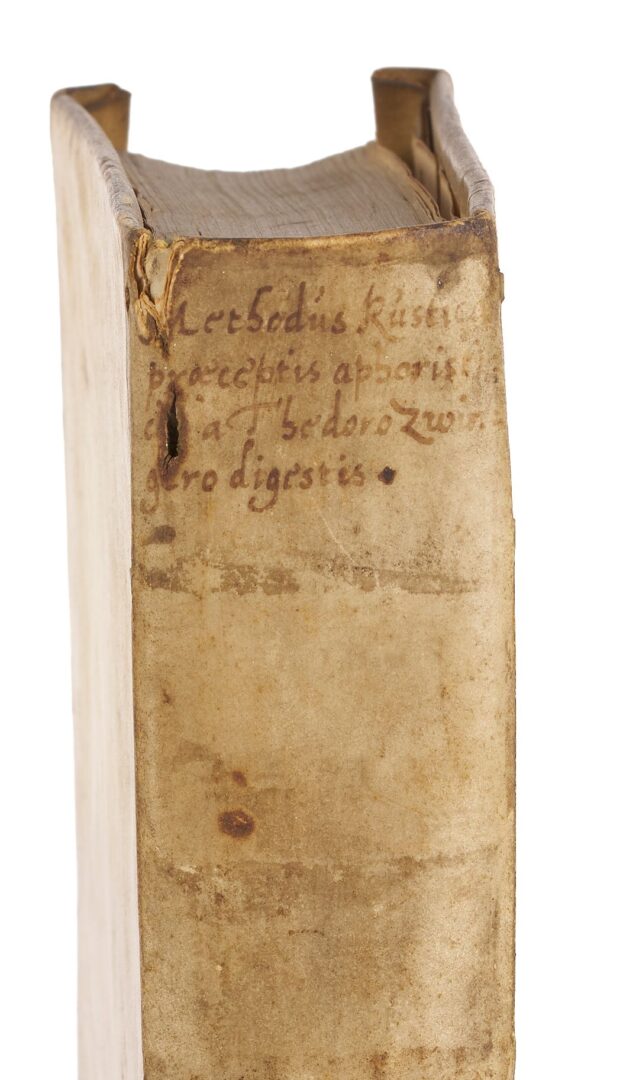 Methodus Rustica
præceptis aphoristi:
a Thedoro Zwin:
gero digestis.